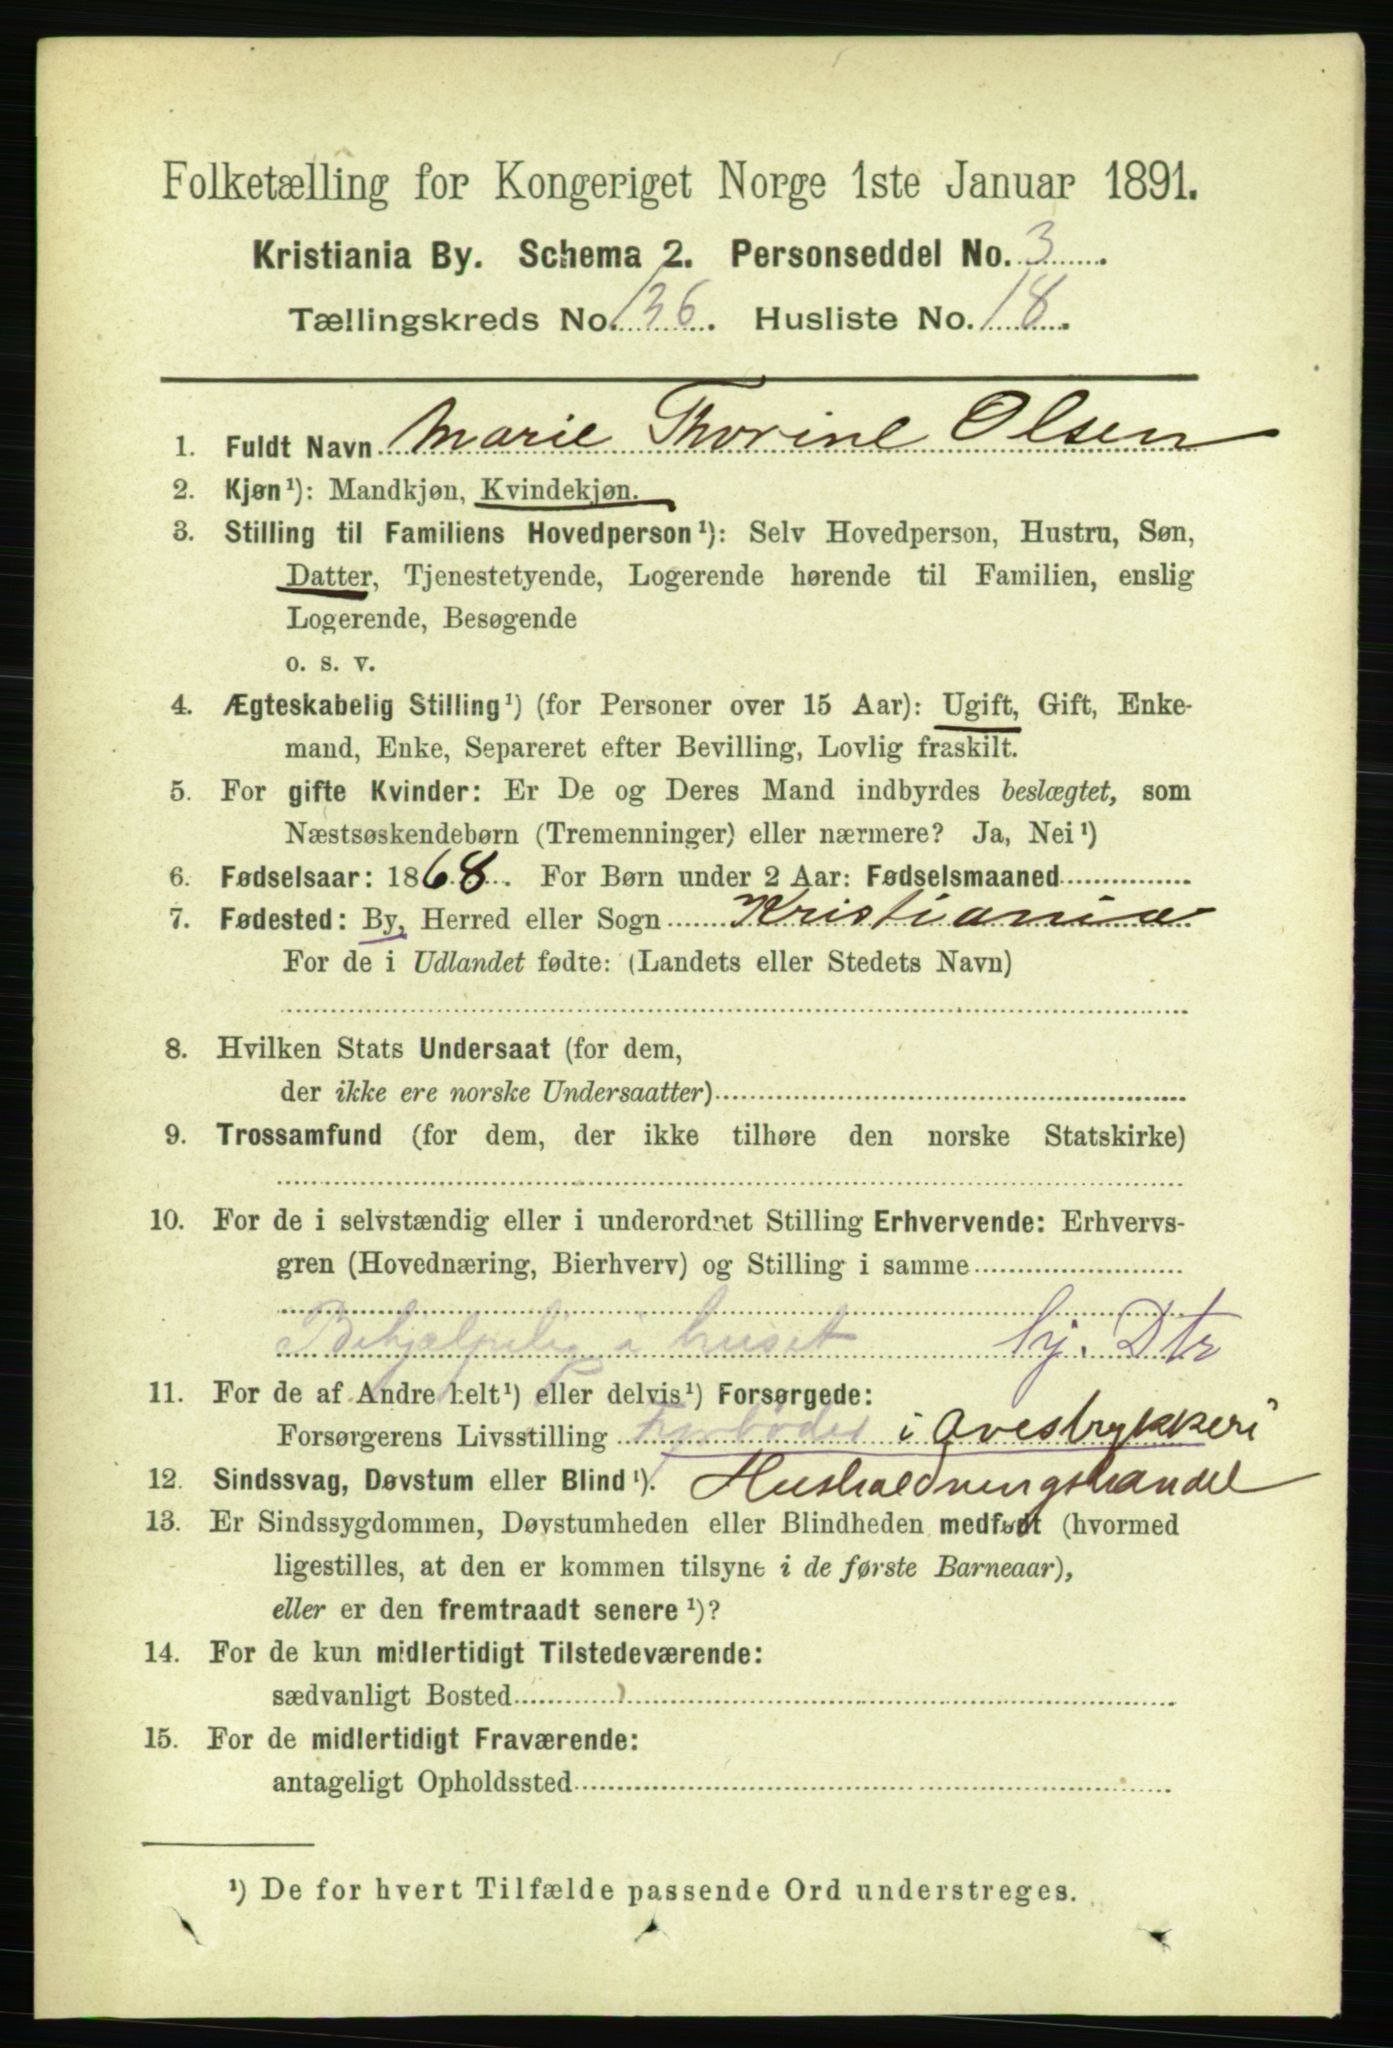 Folketælling for Kongeriget Norge 1ste Januar 1891.
Kristiania By. Schema 2. Personseddel No. 3
Tællingskreds No. 136. Husliste No. 18.
1. Fuldt Navn Marie Thorine Olsen
2. Kjøn¹): Mandkjøn, Kvindekjøn.
3. Stilling til Familiens Hovedperson¹): Selv Hovedperson, Hustru, Søn,
Datter, Tjenestetyende, Logerende hørende til Familien, enslig
Logerende, Besøgende
o. s. v.
4. Ægteskabelig Stilling¹) (for Personer over 15 Aar): Ugift, Gift, Enke-
mand, Enke, Separeret efter Bevilling, Lovlig fraskilt.
5. For gifte Kvinder: Er De og Deres Mand indbyrdes beslægtet, som
Næstsøskendebørn (Tremenninger) eller nærmere? Ja, Nei¹)
6. Fødselsaar: 1868. For Børn under 2 Aar: Fødselsmaaned
7. Fødested: By, Herred eller Sogn Kristiania
For de i Udlandet fødte: (Landets eller Stedets Navn)
8. Hvilken Stats Undersaat (for dem,
der ikke ere norske Undersaatter)
9. Trossamfund (for dem, der ikke tilhøre den norske Statskirke)
10. For de i selvstændig eller i underordnet Stilling Erhvervende: Erhvervs-
gren (Hovednæring, Bierhverv) og Stilling i samme
Behjælpelig i huset hj. Dtr
11. For de af Andre helt¹) eller delvis¹) Forsørgede:
Forsørgerens Livsstilling Fyrbøder i Avestrykkeri
12. Sindssvag, Døvstum eller Blind¹). Husholdningshandel
13. Er Sindssygdommen, Døvstumheden eller Blindheden medfødt (hvormed
ligestilles, at den er kommen tilsyne i de første Barneaar),
eller er den fremtraadt senere¹)?
14. For de kun midlertidigt Tilstedeværende:
sædvanligt Bosted
15. For de midlertidigt Fraværende:
antageligt Opholdssted
¹) De for hvert Tilfælde passende Ord understreges.